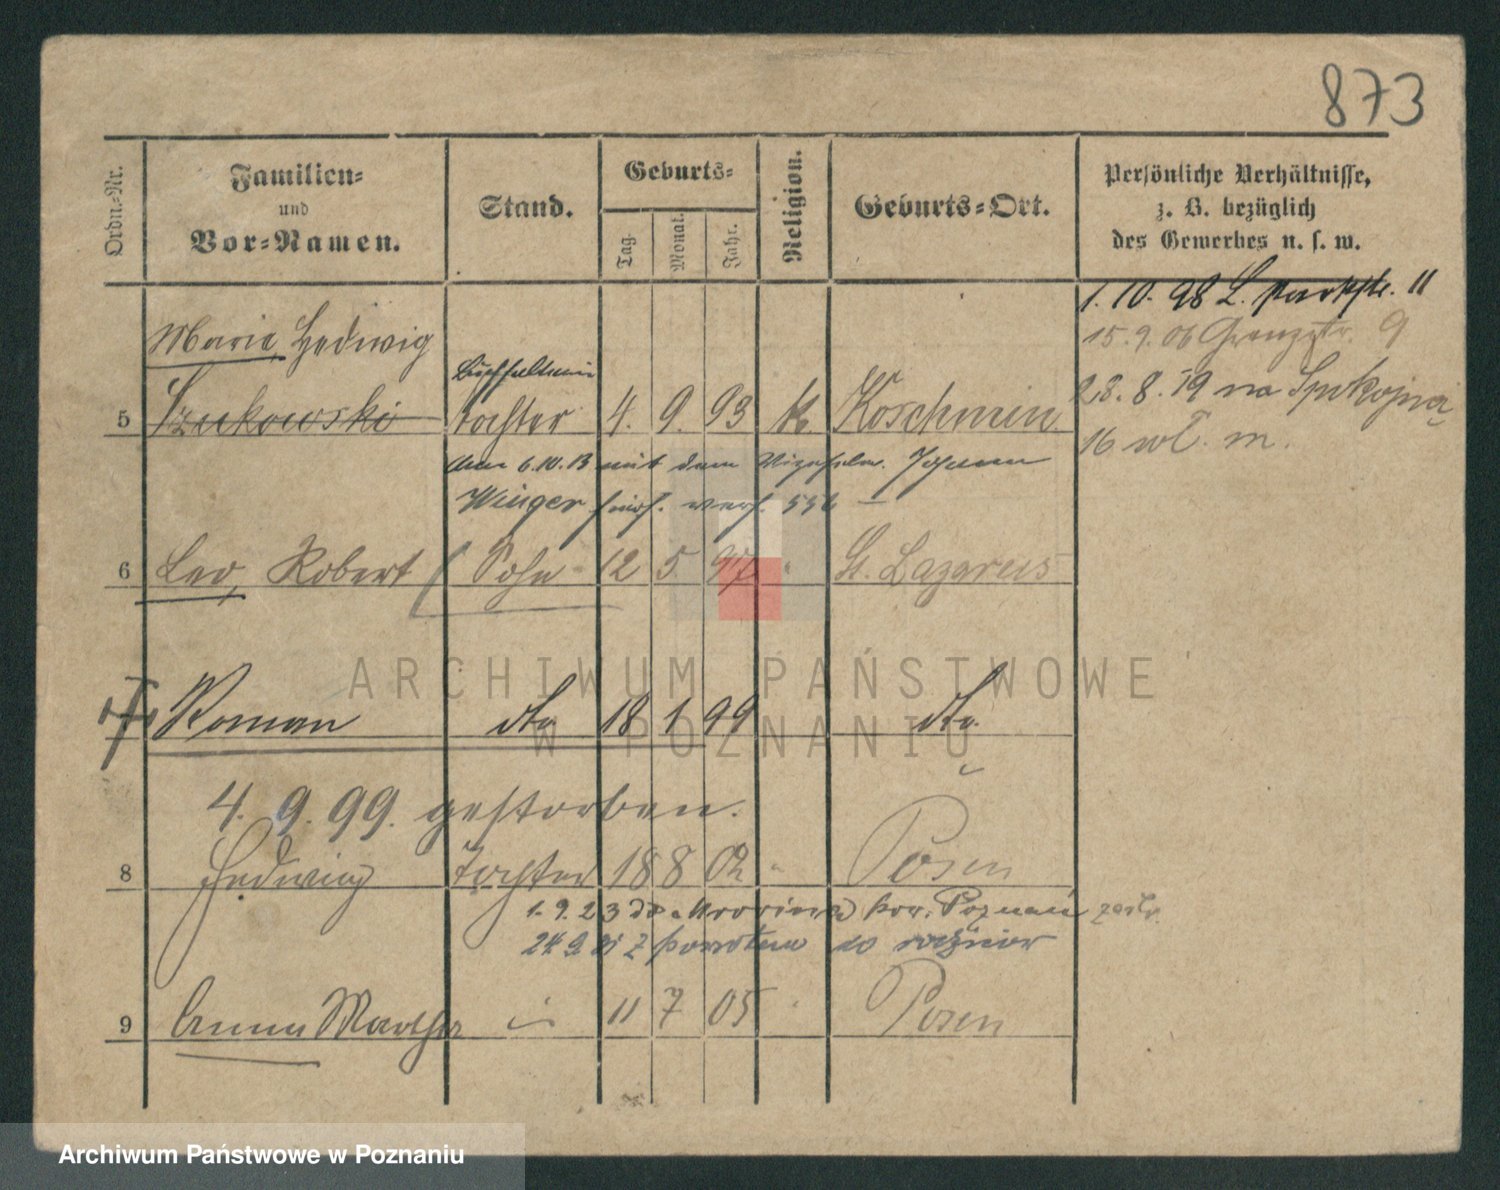 873
Ordn.-Nr.
Familien-
und
Vor-Namen.
Stand.
Geburts-
Tag.
Monat.
Jahr.
Religion.
Geburts-Ort.
Persönliche Verhältnisse,
z. B. bezüglich
des Gewerbes u. s. w.
1. 10. 98 L. Parkstr. 11
15. 9. 06 Grenzstr. 9
28. 8. 19 na Spokojną
16 wł. m.
Marie Hedwig
Buchhalterin
5 Szukowski Tochter 4. 9. 93 k. Koschmin
am 6.10.13 mit dem Johann
Winger
6 Leo, Robert Sohn 12 5 97 " St. Lazarus
7 Roman dto 18 1 99 dto.
4. 9. 99. gestorben.
8 Hedwig Tochter 18 8 02 " Posen
1. 9. 23 do pow. Poznań
24 9 z powrotem do
9 Anna Martha 11 7 05 " Posen
ARCHIWUM PAŃSTWOWE
W POZNANIU
Archiwum Państwowe w Poznaniu